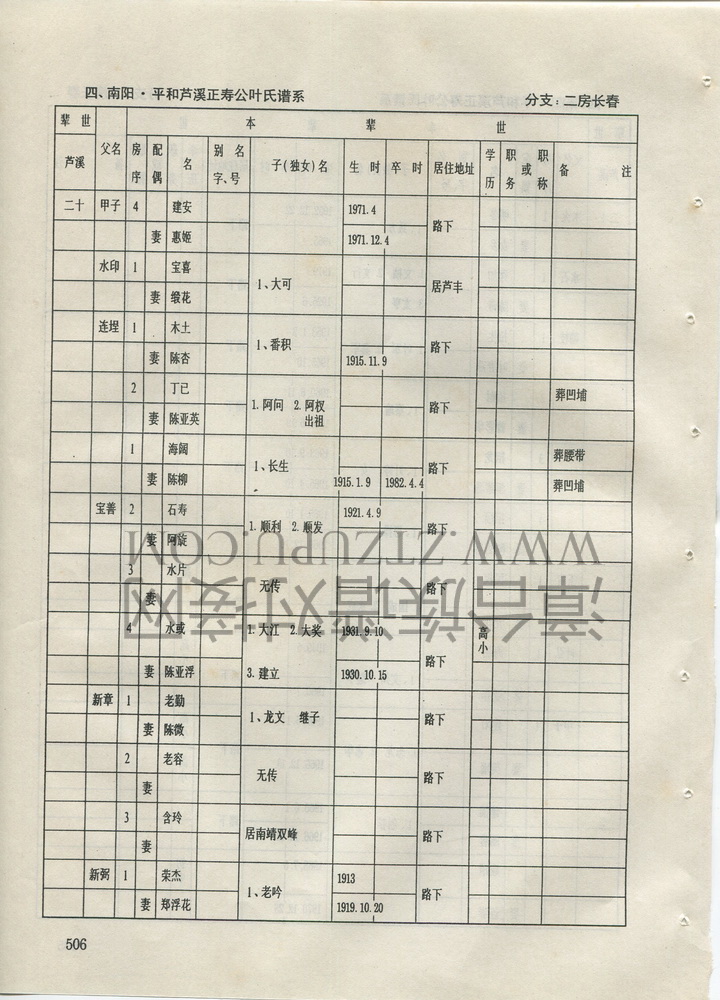 四、南阳·平和芦溪正寿公叶氏谱系 分支：二房长春
辈世 本 辈 世
芦溪 父名 房序 配偶 名 别名字、号 子(独女)名 生时 卒时 居住地址 学历 职务或职称 备注
二十 甲子 4 建安 1971.4 路下
妻 惠姬 1971.12.4
水印 1 宝喜 1、大可 居芦丰
妻 缎花
连埕 1 木土 1、番积 路下
妻 陈杏 1915.11.9
2 丁已 1.阿问 2.阿杈出祖 路下 葬凹埔
妻 陈亚英
1 海阔 1、长生 路下 葬腰带
妻 陈柳 1915.1.9 1982.4.4 葬凹埔
宝善 2 石寿 1.顺利 2.顺发 1921.4.9 路下
妻 阿旋
3 水片 无传 路下
妻
4 水或 1.大江 2.大奖 1931.9.10 路下 高小
妻 陈亚浮 3.建立 1930.10.15
新章 1 老勤 1、龙文 继子 路下
妻 陈微
2 老容 无传 路下
妻
3 含玲 居南靖双峰 路下
妻
新弼 1 荣杰 1、老吟 1913 路下
妻 郑浮花 1919.10.20
506
漳台族谱对接网
WWW.ZTZUPU.COM